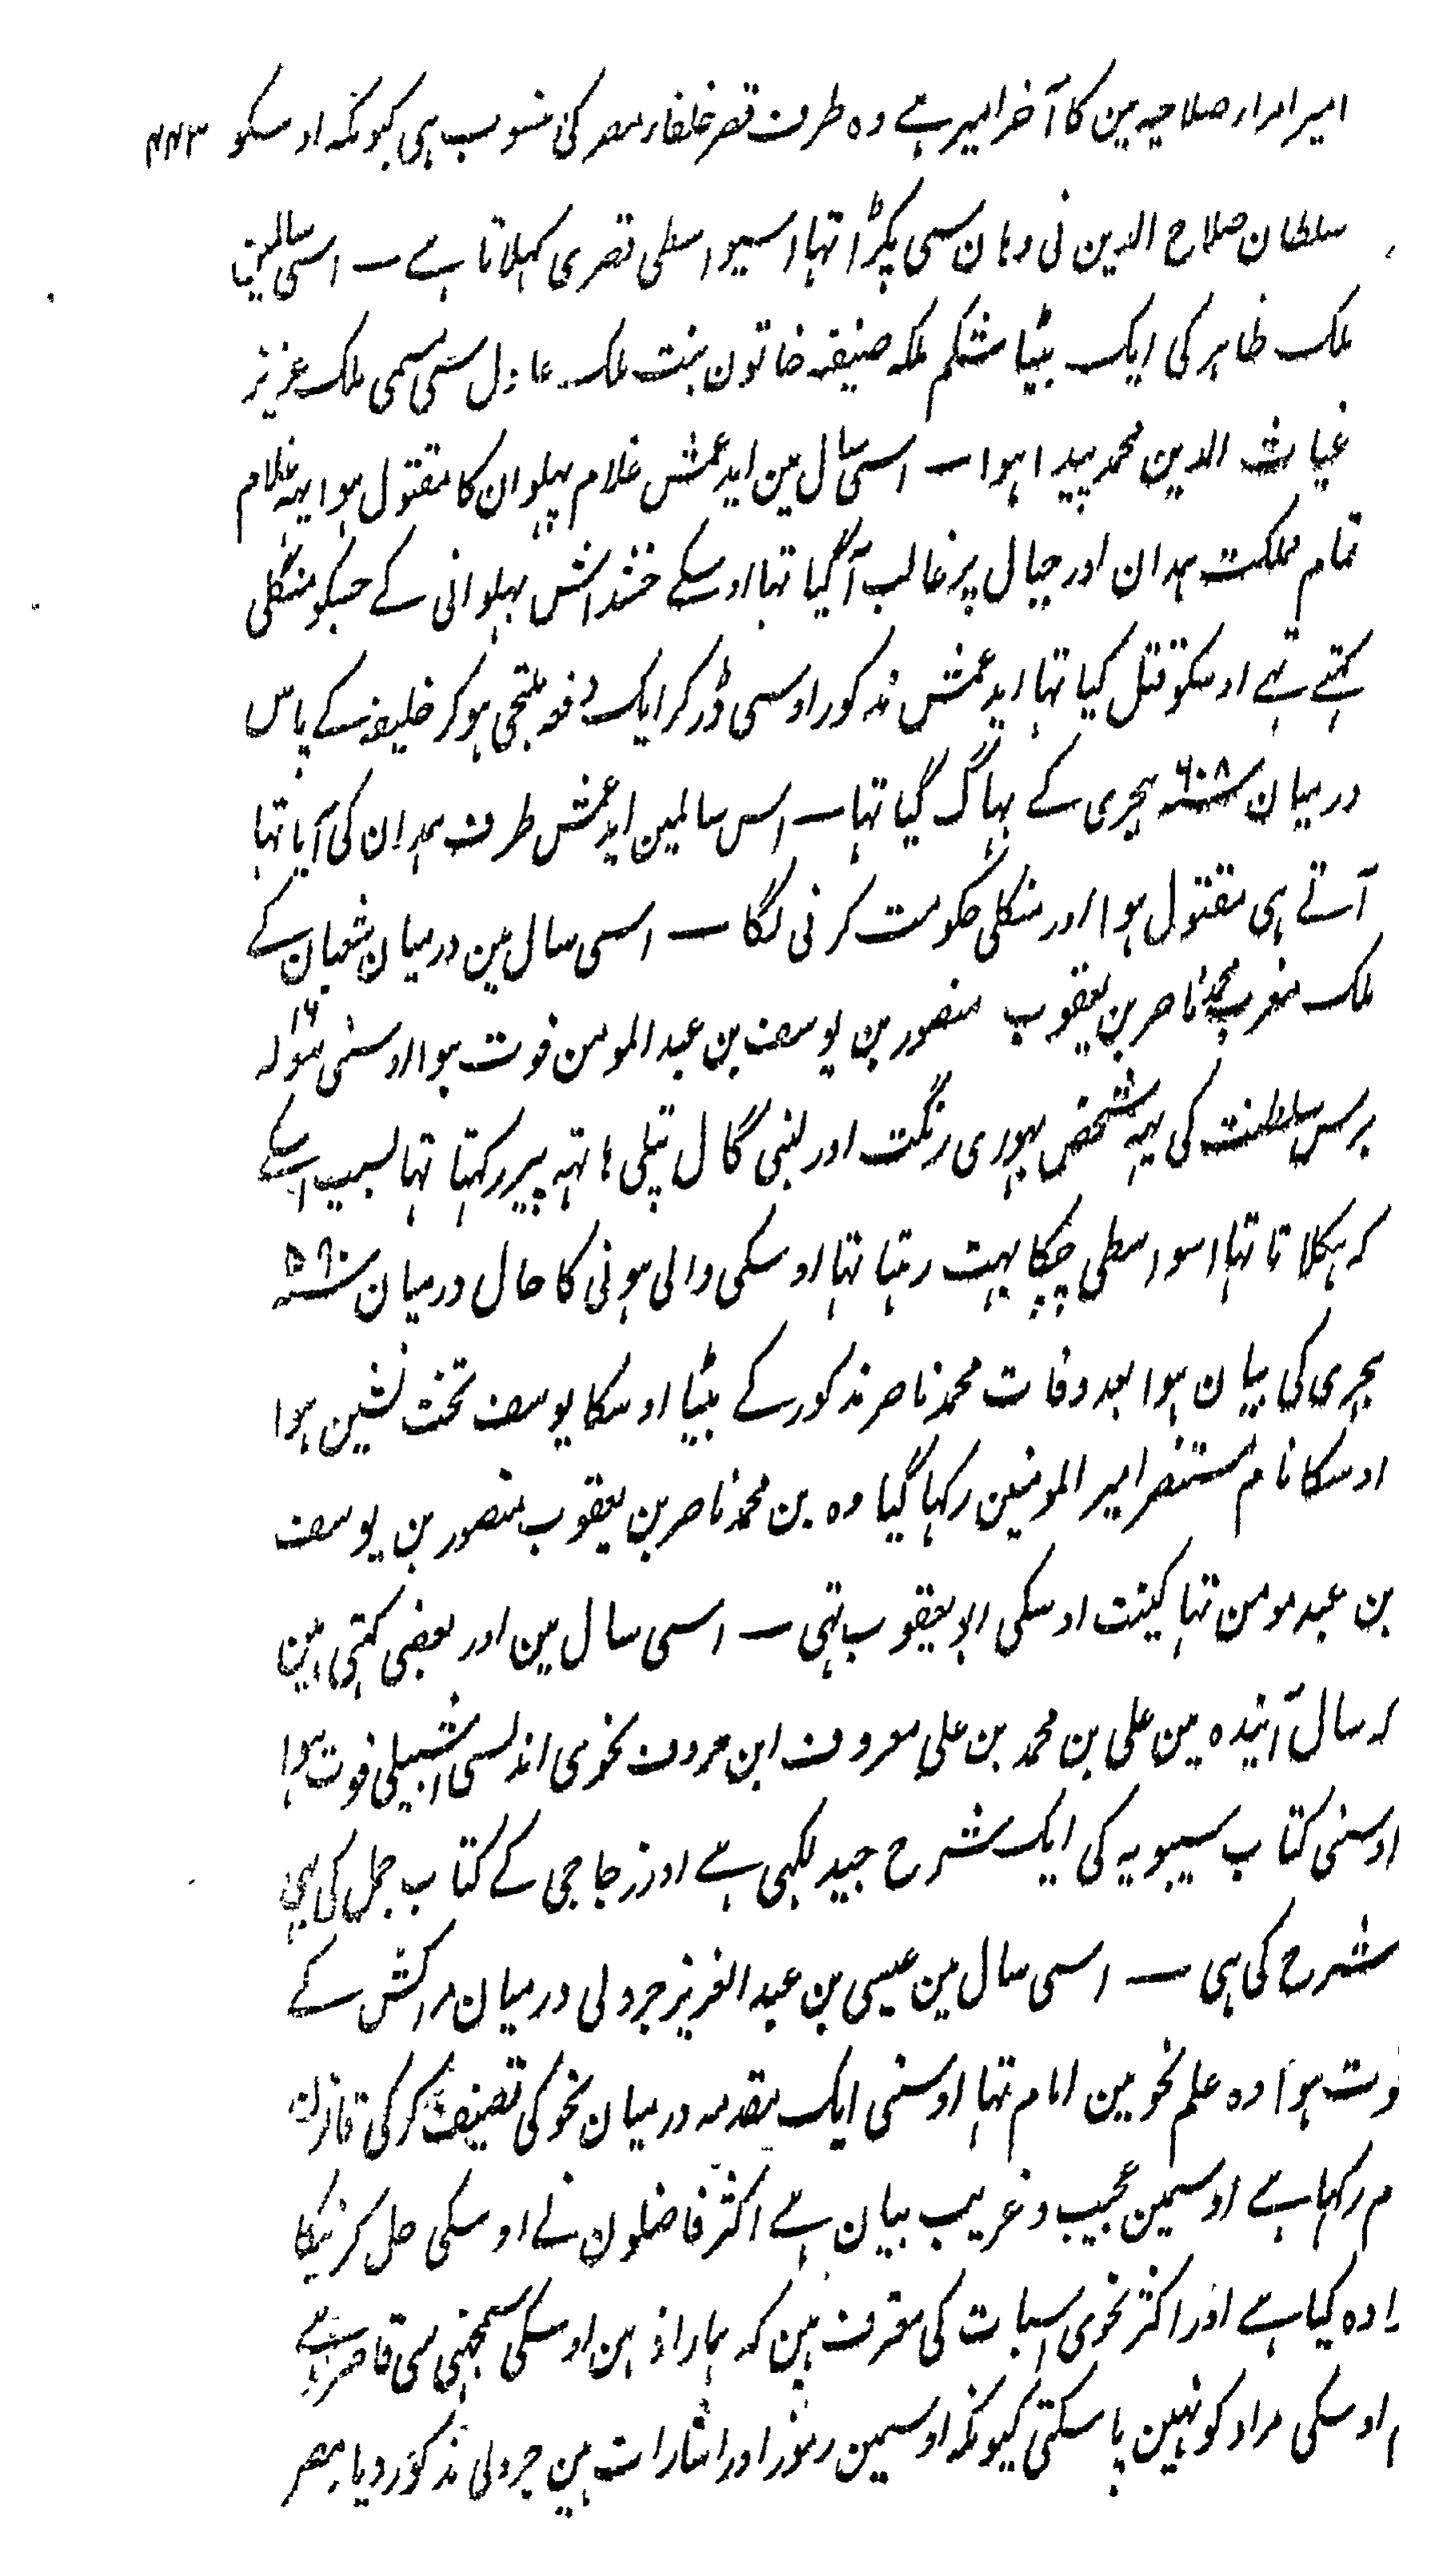 امیر امراء صلاحیہ مین کا آخر امیر ہے وہ طرف قصر خلفاء مصر کی منسوب ہی کیونکہ اوسکو ۴۴۳
سلطان صلاح الدین نی وہان سی پکڑا تہا اسیواسطی قصری کہلاتا ہے — اسی سالمین
ملک ظاہر کی ایک بیٹا شکم ملکہ صنیفہ خاتون بنت ملک عادل سی سمی ملک عزیز
غیاث الدین محمد پیدا ہوا — اسی سال مین ایدغمش غلام پہلوان کا مقتول ہوا یہہ غلام
تمام مملکت ہمدان اور جبال پر غالب آگیا تہا اوسکے خشداش پہلوانی کے جسکو منگلی
کہتے تہے اوسکو قتل کیا تہا ایدغمش مذکور اوسی ڈر کر ایک دفعہ ملتجی ہوکر خلیفہ کے پاس
درمیان سنہ ۶۰۸ ہجری کے بہاگ گیا تہا — اس سالمین ایدغمش طرف ہمدان کی آیا تہا
آتے ہی مقتول ہوا اور منکلی حکومت کرنی لگا — اسی سال مین درمیان شعبان کے
ملک مغرب محمد ناصر بن یعقوب منصور بن یوسف بن عبدالمومن فوت ہوا اوسنی سولہ ۱۶
برس سلطنت کی یہہ شخص بہوری رنگت اور لنبی گال پتلی ہاتہہ پیر رکہتا تہا بسبب اسکے
کہ ہکلاتا تہا اسواسطی چپکا بہت رہتا تہا اوسکی والی ہونی کا حال درمیان سنہ ۵۹۰
ہجری کی بیان ہوا بعد وفات محمد ناصر مذکور کے بیٹا اوسکا یوسف تخت نشین ہوا
اوسکا نام مستنصر امیر المومنین رکہا گیا وہ بن محمد ناصر بن یعقوب منصور بن یوسف
بن عبد مومن تہا کینت اوسکی ابو یعقوب تہی — اسی سال مین اور بعضی کہتی ہین
کہ سال آیندہ مین علی بن محمد بن علی معروف ابن خروف نحوی اندلسی اشبیلی فوت ہوا
اوسنی کتاب سیبویہ کی ایک شرح جید لکہی ہے اور زجاجی کے کتاب جمل کی بہی
شرح کی ہی — اسی سال مین عیسی بن عبد العزیز جزولی درمیان مراکش کے
فوت ہوا وہ علم نحو مین امام تہا اوسنی ایک مقدمہ درمیان نحو کی تصنیف کر کی قانون
م رکہا ہے اوسمین عجیب و غریب بیان ہے اکثر فاضلون نے اوسکی حل کرنیکا
ارادہ کیا ہے اور اکثر نحوی اسبات کی معترف ہین کہ ہمارا ذہن اوسکی سمجہنی سی قاصر ہے
م اوسکی مراد کو نہین پا سکتی کیونکہ اوسمین رموز اور اشارات ہین جزولی مذکور دیار مصر